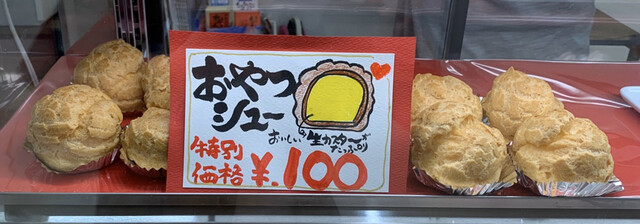 おやつ
シュー
おいしい生カスタード
たっぷり
特別
価格 ¥.100